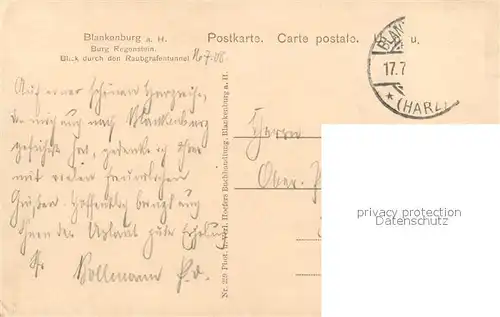 Blankenburg a. H.
Burg Regenstein.
Blick durch den Raubgrafentunnel
16.7.08.
Postkarte. Carte postale.
BLAN
17.7
* (HARZ)
Auf einer schönen Harzreise,
die mich auch nach Blankenburg
geführt hat, gedenke ich Ihrer
mit vielen freundlichen
Grüßen. Hoffentlich bringt auch
Ihnen der Urlaub gute Erholung
Ihr Bollmann
Herrn
Ober
Nr. 229 Phot. u. Verl. Hoefers Buchhandlung, Blankenburg a. H.
privacy protection
Datenschutz